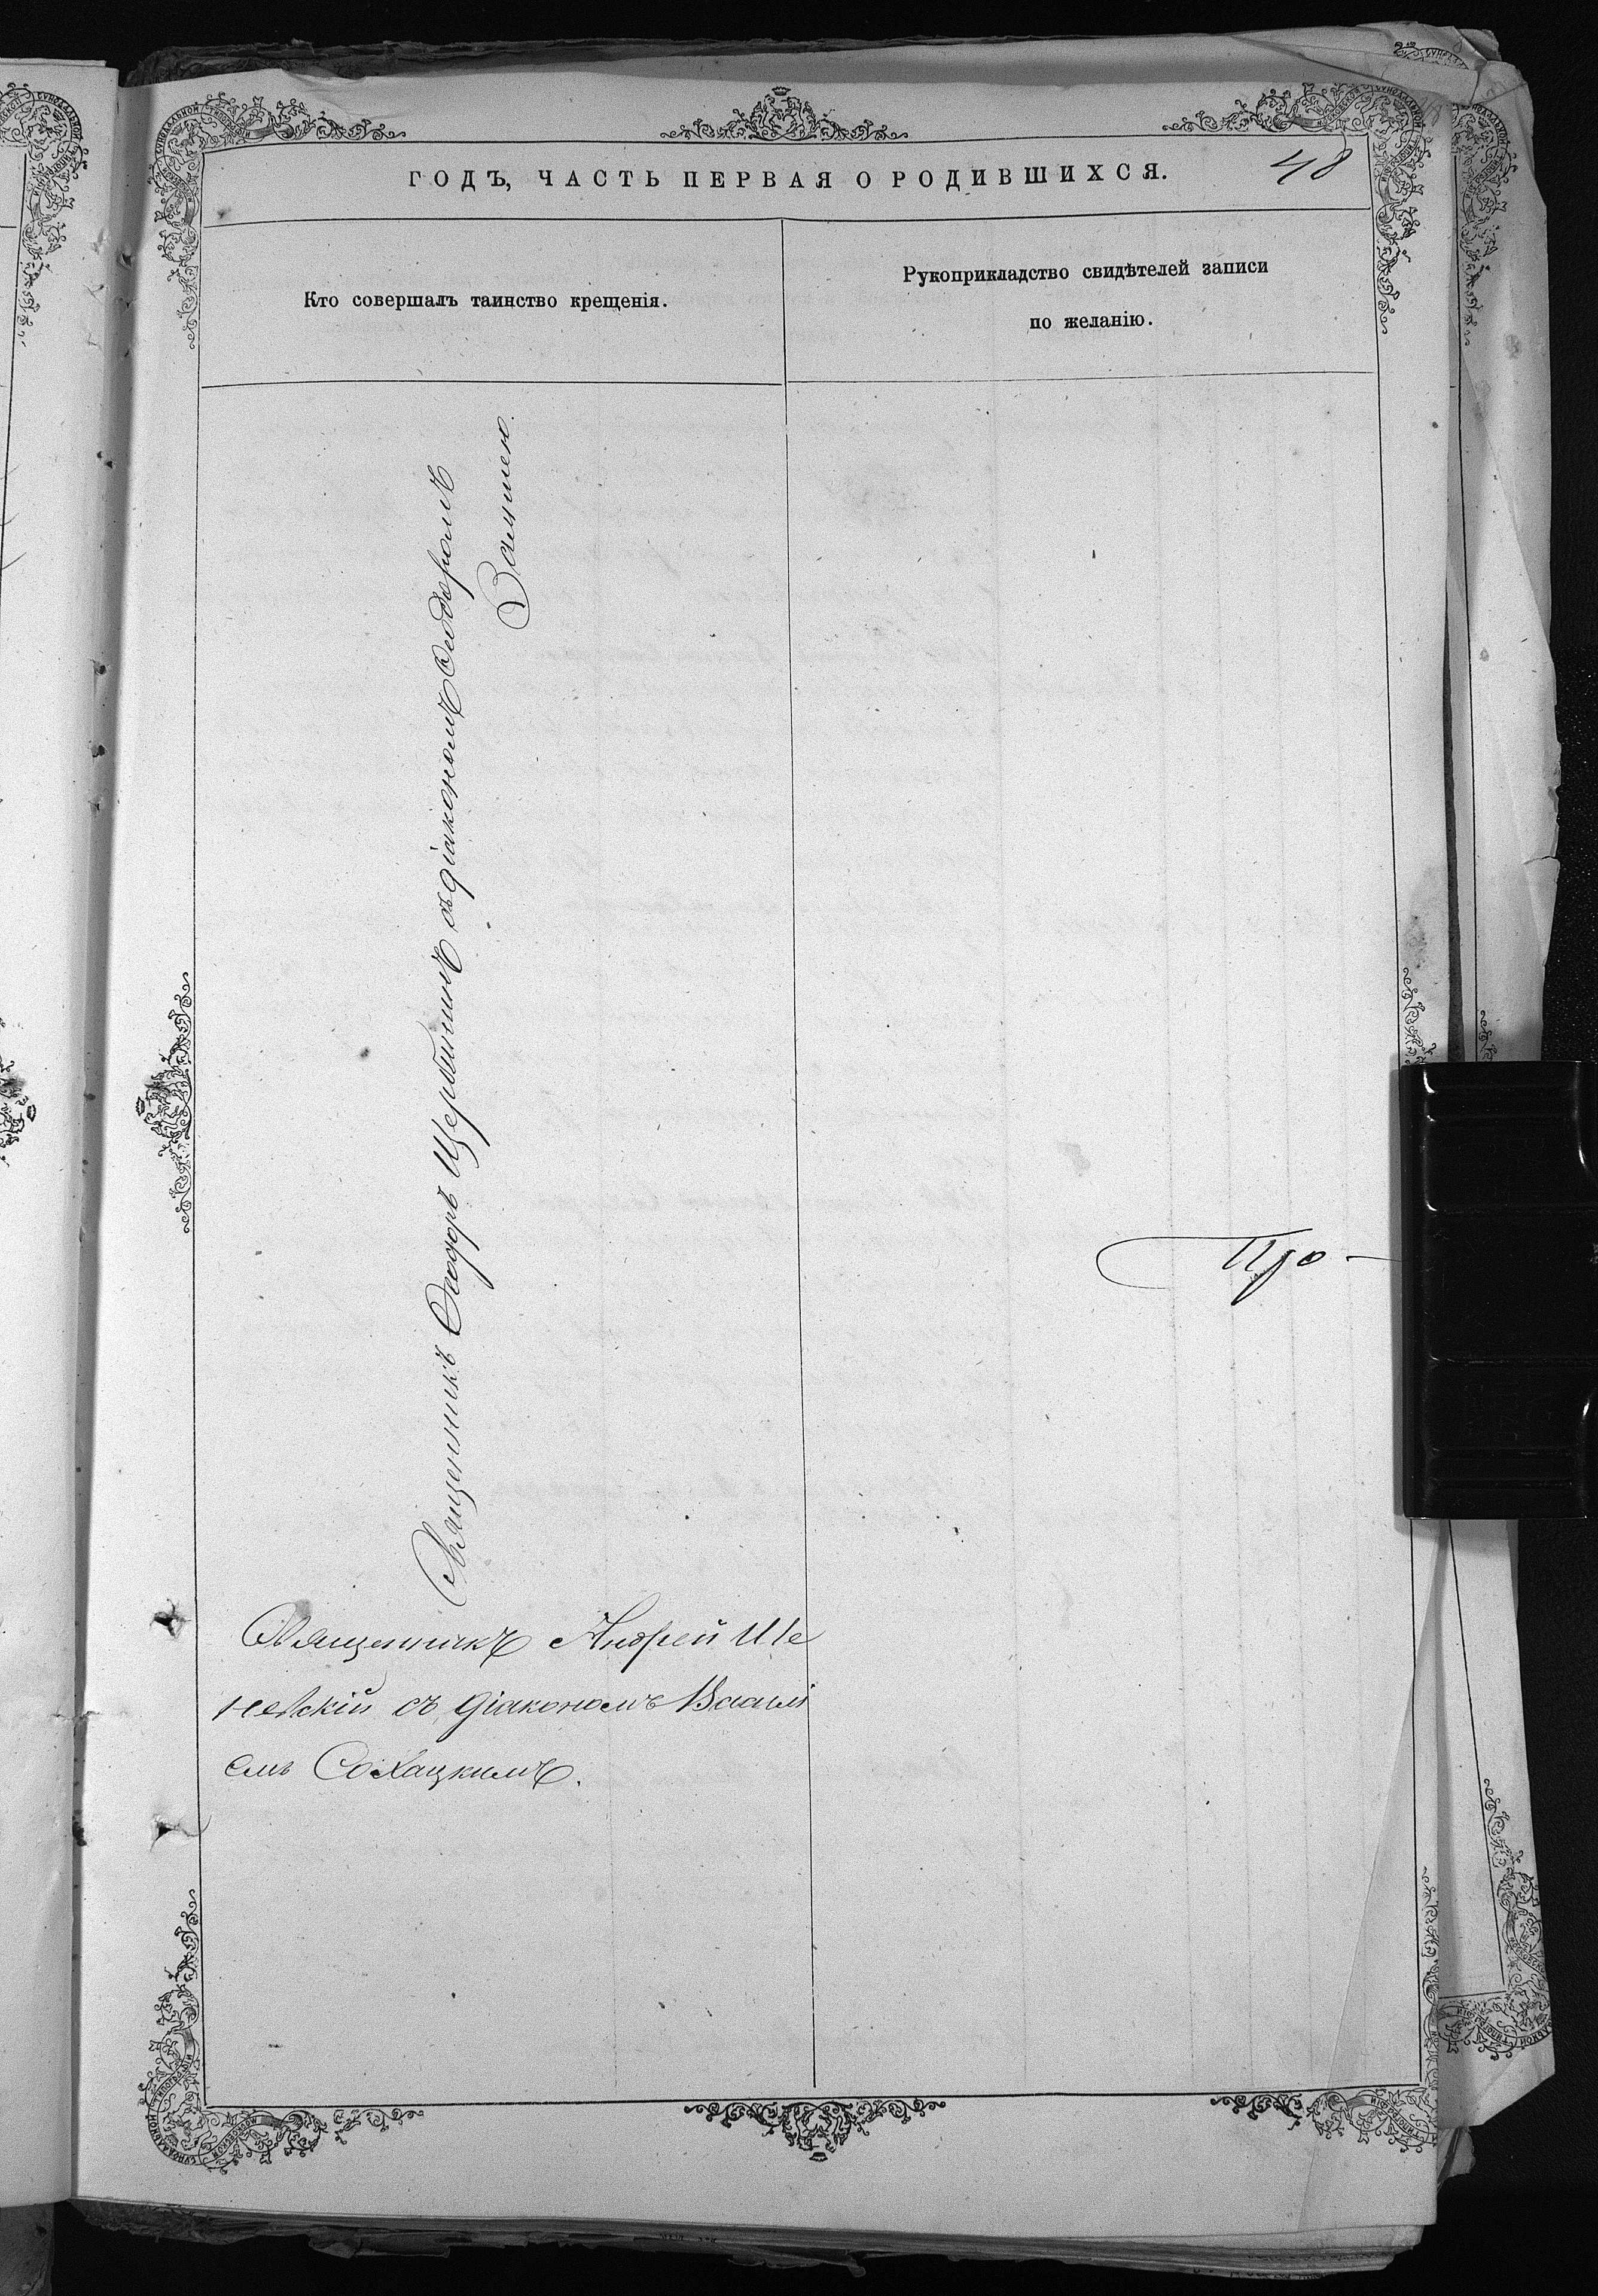 ГОДЪ, ЧАСТЬ ПЕРВАЯ О РОДИВШИХСЯ.
48
Кто совершалъ таинство крещенія.
Рукоприкладство свидѣтелей записи
по желанію.
Священникъ Ѳеодоръ Щербининъ съ діакономъ Ѳеодоромъ
Священникъ Андрей Ше
невскій съ діакономъ Васили
емъ Сохацкимъ.
Про-